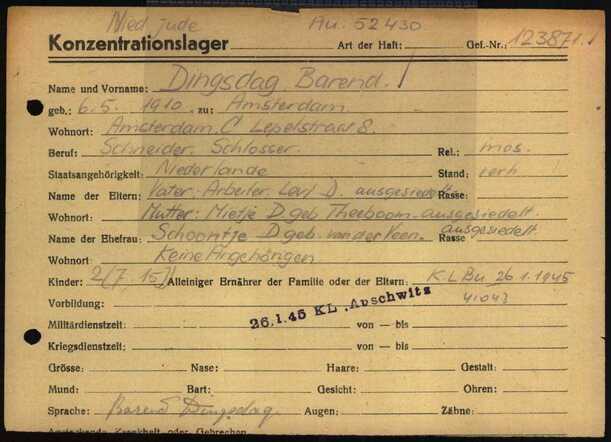 Nied jude Au. 52430
Konzentrationslager Art der Haft: Gef.-Nr.: 123871.
Name und Vorname: Dingsdag Barend.
geb.: 6.5. 1910 zu: Amsterdam
Wohnort: Amsterdam. C Lepelstraat 8.
Beruf: Schneider. Schlosser. Rel.: mos.
Staatsangehörigkeit: Niederlande Stand: verh
Name der Eltern: Vater: Arbeiter Levi D. ausgesiedelt Rasse:
Wohnort: Mutter: Mietje D. geb. Theeboom ausgesiedelt.
Name der Ehefrau: Schoontje D geb. van der Veen. ausgesiedelt Rasse
Wohnort: Keine Angehörigen
Kinder: 2 (7, 15) Alleiniger Ernährer der Familie oder der Eltern: K.L.Bu. 26.1.1945
Vorbildung: 41043
26.1.45 KL. Auschwitz
Militärdienstzeit: von — bis
Kriegsdienstzeit: von — bis
Grösse: Nase: Haare: Gestalt:
Mund: Bart: Gesicht: Ohren:
Sprache: Barend Dingsdag. Augen: Zähne:
Ansteckende Krankheit oder Gebrechen